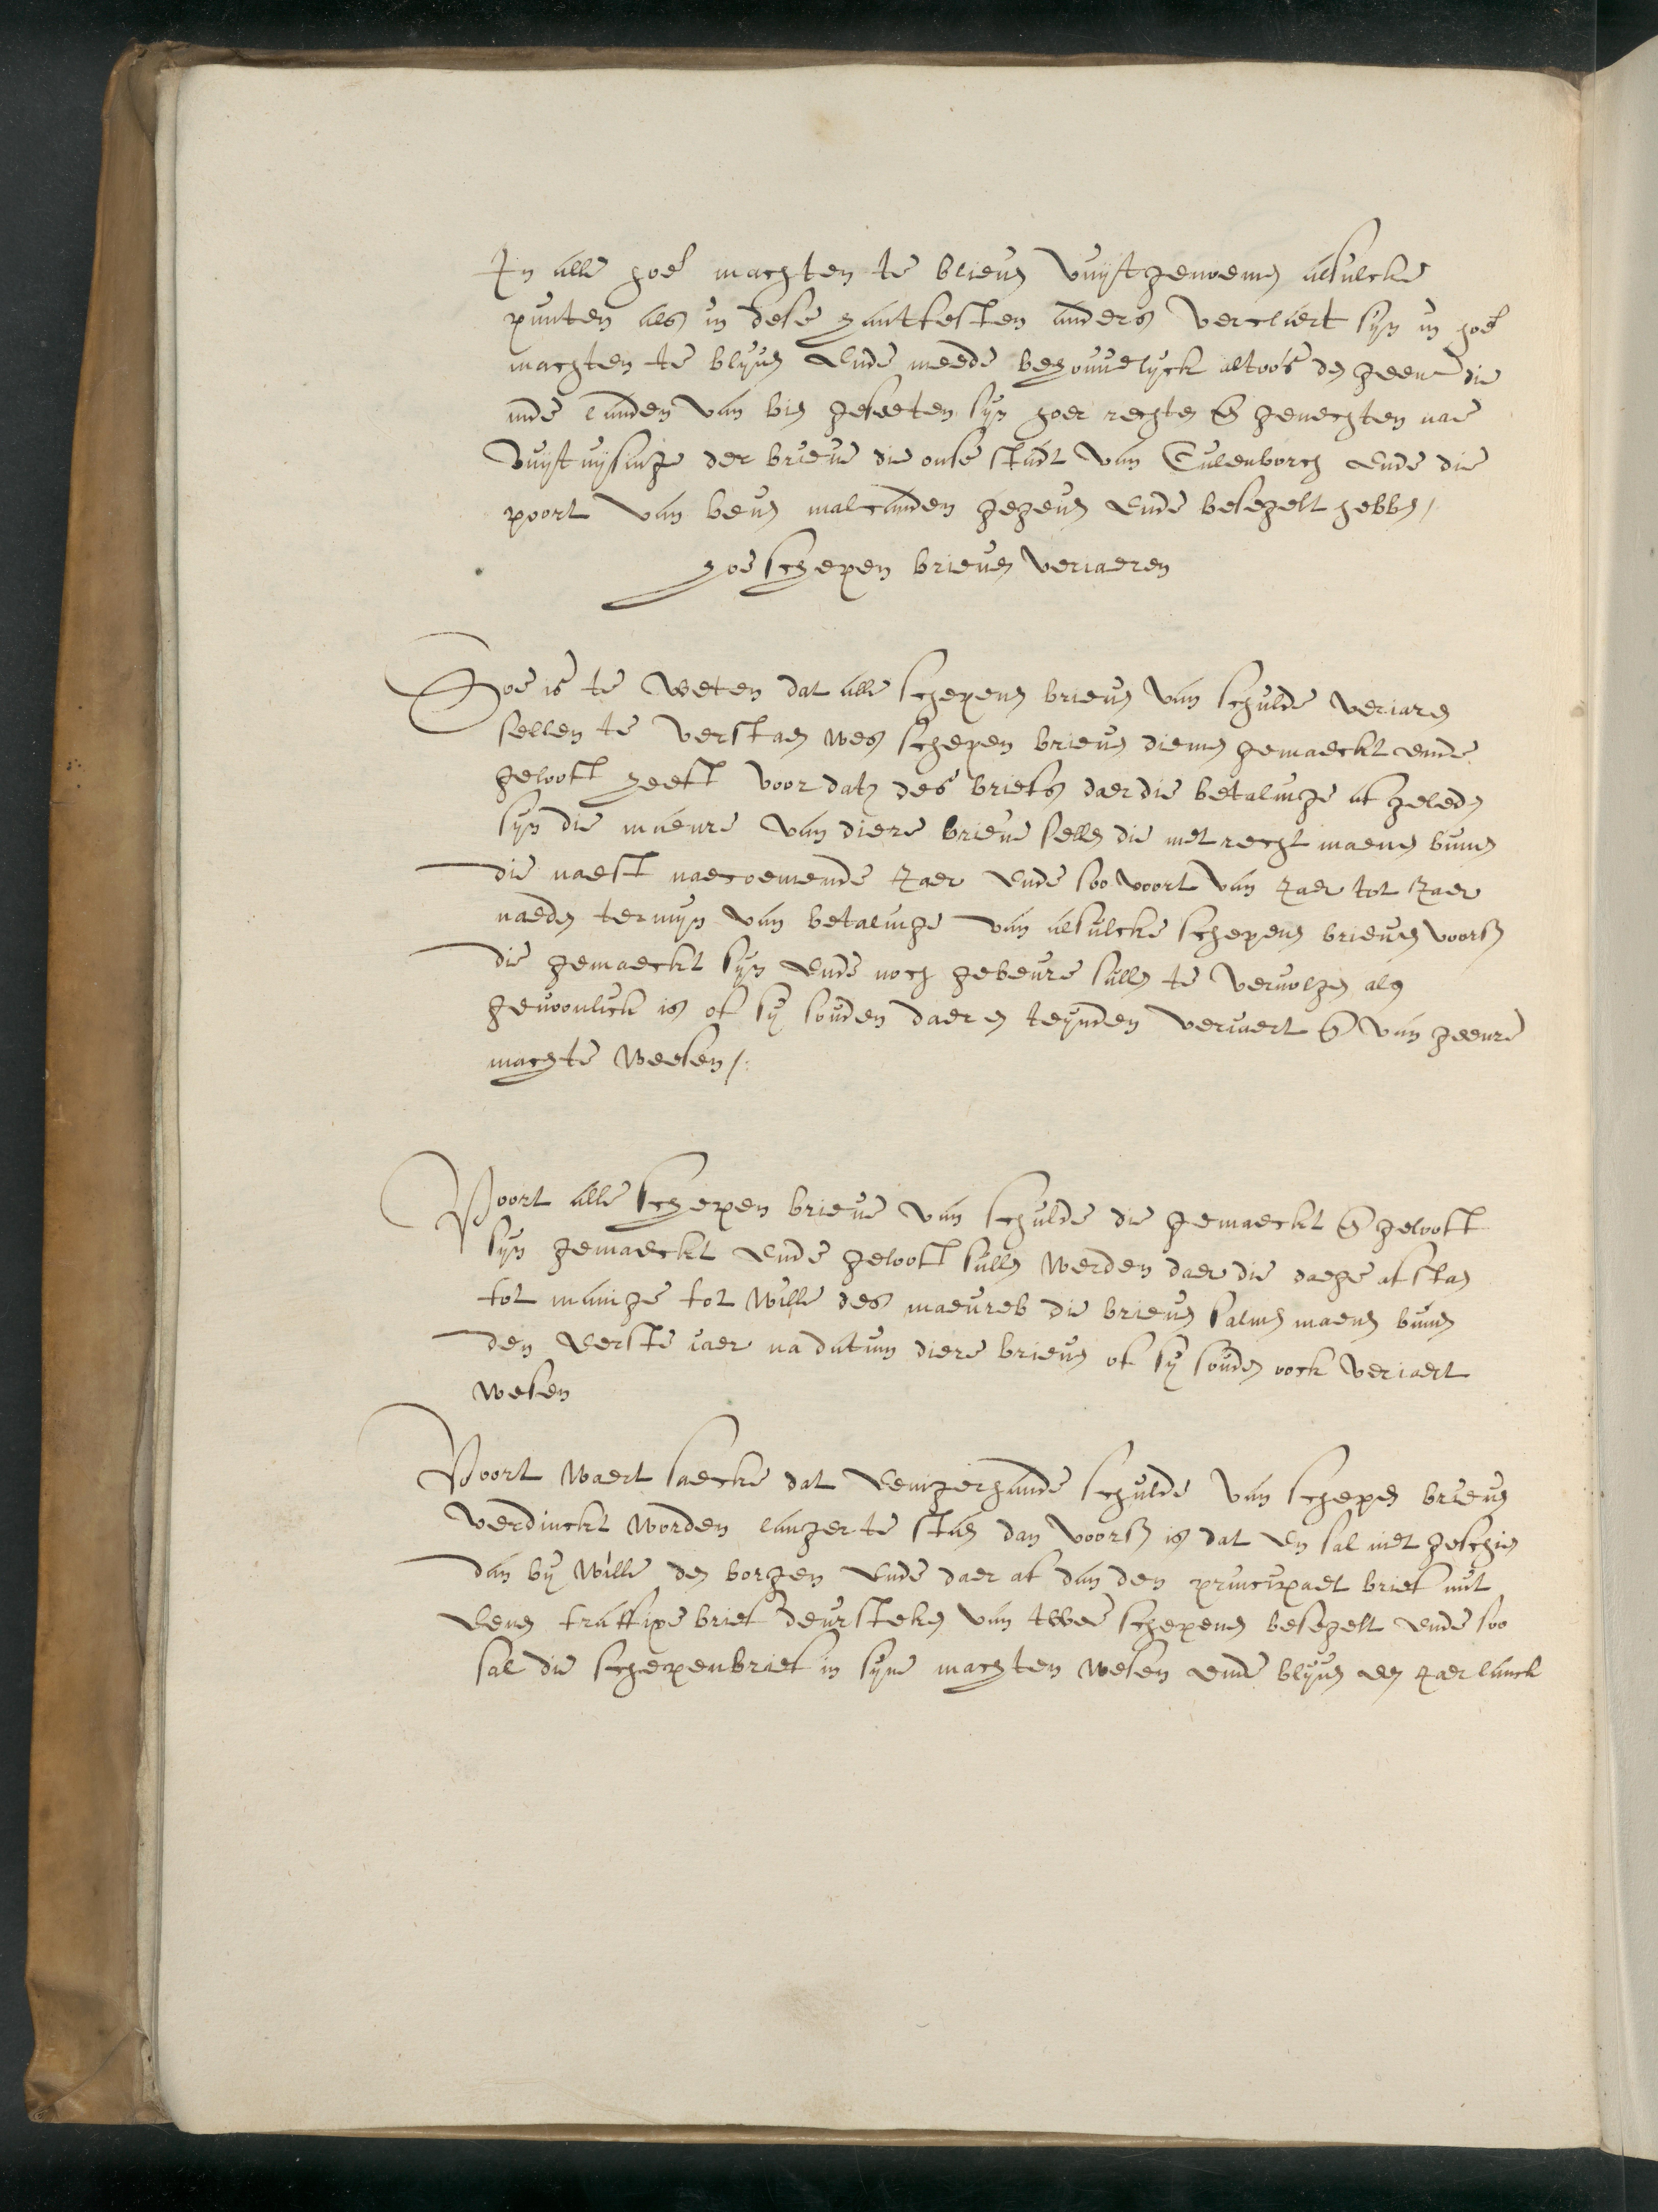 In alle hoer machten te bliven vuijtgenoemen alsulcke
punten als in dese hantfesten anders verclaert sijn in hoer
machten te blijven Ende meede behouuelijck altoos den geene die
inde landen van bis geseeten sijn hoer rechten en gerechten nae
vuijtwijsinge der brieve die onse stadt van Culenborch Ende die
poort van malcanden gegeven Ende besegelt hebben /
hoe schepen brieven veriaeren
Hoe is te weten dat alle schepenen brieven van schulde veriaren
sellen te verstaen wes schepen brieven diemen gemaeckt ende
gelooft heeft voor daten des briefs daer die betalinge af geleden
sijn die maenre van diere brieve sellen die met recht maenen binnen
die naest naecoemende Jaer Ende soo voort van Jaer tot Jaer
naeden termijn van betalinge van alsulcke schepenen brieven voors
die gemaeckt sijn Ende noch gebeure sullen te vervolgen als
gewoonlick is of sij souden daer en teynden veriaert en van geenre
machte weesen /.
Voort alle schepen brieve van schulde die gemaeckt en gelooft
sijn gemaeckt Ende gelooft sullen werden daer die daege af staen
tot maninge tot wille des die brieven salmen maenen binnen
den eerste iaer na datum diere brieven of sij souden oock veriaert
wesen
Voort waert saecke dat eenigerhande schulde van schepen brieven
verdinckt worden langer te staen dan voors is dat en sal niet geschien
dan bij wille den borgen Ende daer af dan den principael brief mit
eenen transfixe brief deursteken van twee schepenen besegelt ende soo
sal die schepenbrief in sijne machten wesen ende blijven een Jaer lanck